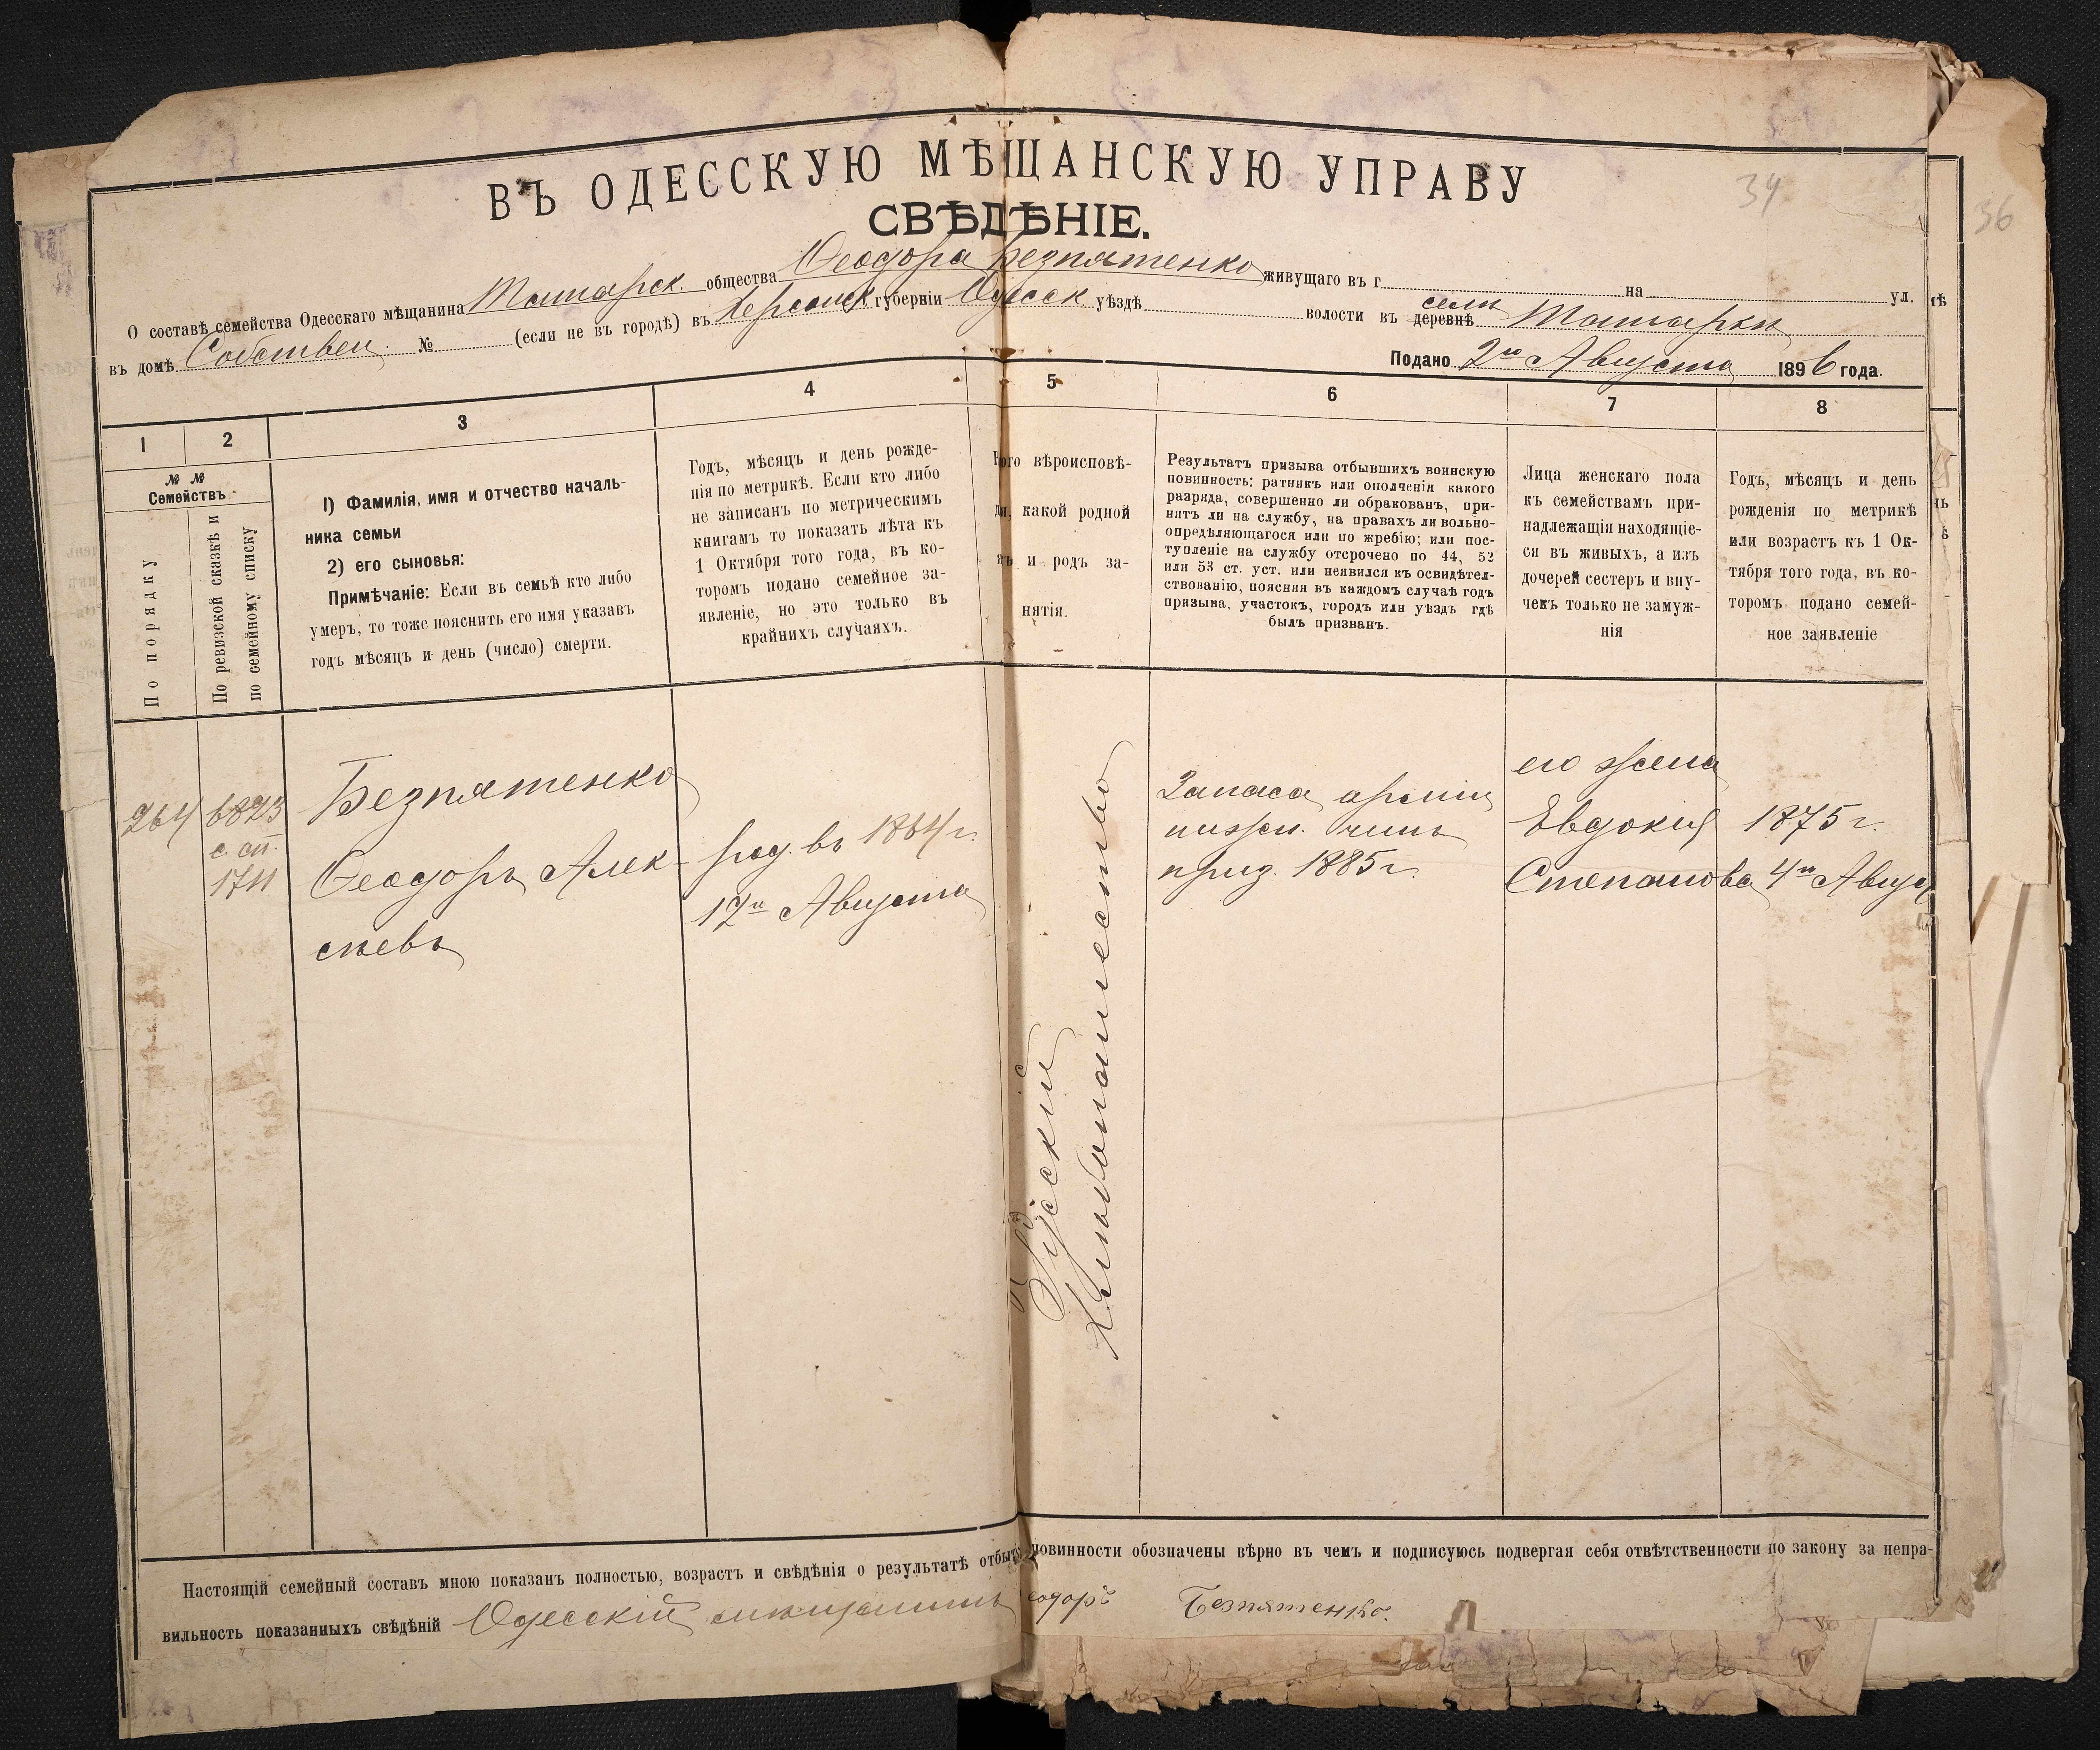 34
36
ВЪ ОДЕССКУЮ МѢЩАНСКУЮ УПРАВУ
СВѢДѢНІЕ.
О составѣ семейства Одесскаго мѣщанина Ташарск. общества Ѳеодора Безпятенко живущаго въ г на ул.
въ домѣ Собствен. № (если не въ городѣ) въ Херсонск губерніи Одесск уѣздѣ волости въ деревнѣ селѣ Ташаркѣ
Подано 2го Августа 1896 года.
1 2 3 4 5 6 7 8
№ №
Семействъ
По порядку
По ревизской сказкѣ и
по семейному списку
1) Фамилія, имя и отчество началь-
ника семьи
2) его сыновья:
Примѣчаніе: Если въ семьѣ кто либо
умеръ, то тоже пояснить его имя указавъ
годъ мѣсяцъ и день (число) смерти.
Годъ, мѣсяцъ и день рожде-
нія по метрикѣ. Если кто либо
не записанъ по метрическимъ
книгамъ то показать лѣта къ
1 Октября того года, въ ко-
торомъ подано семейное за-
явленіе, но это только въ
крайнихъ случаяхъ.
Кого вѣроисповѣ-
ди, какой родной
къ и родъ за-
нятія.
Результатъ призыва отбывшихъ воинскую
повинность: ратникъ или ополченія какого
разряда, совершенно ли обракованъ, при-
нятъ ли на службу, на правахъ ли вольно-
опредѣляющагося или по жребію; или пос-
тупленіе на службу отсрочено по 44, 52
или 53 ст. уст. или неявился къ освидѣтел-
ствованію, поясняя въ каждомъ случаѣ годъ
призыва, участокъ, городъ или уѣздъ гдѣ
былъ призванъ.
Лица женскаго пола
къ семействамъ при-
надлежащія находящіе-
ся въ живыхъ, а изъ
дочерей сестеръ и вну-
чекъ только не замуж-
нія
Годъ, мѣсяцъ и день
рожденія по метрикѣ
или возрастъ къ 1 Ок-
тября того года, въ ко-
торомъ подано семей-
ное заявленіе
264
6823
с. сп.
1711
Безпятенко
Ѳеодоръ Алек-
сѣевъ
род. въ 1864 г.
12го Августа
Русскій
Хлѣбопашество
Запаса арміи
нижн. чинъ
приз. 1885 г.
его жена
Евдокія
Степанова
1875 г.
4го Август
Настоящій семейный составъ мною показанъ полностью, возрастъ и свѣдѣнія о результатѣ отбыт повинности обозначены вѣрно въ чемъ и подписуюсь подвергая себя отвѣтственности по закону за непра-
вильность показанныхъ свѣдѣній Одесскій мѣщанинъ еодоръ Безпятенко.